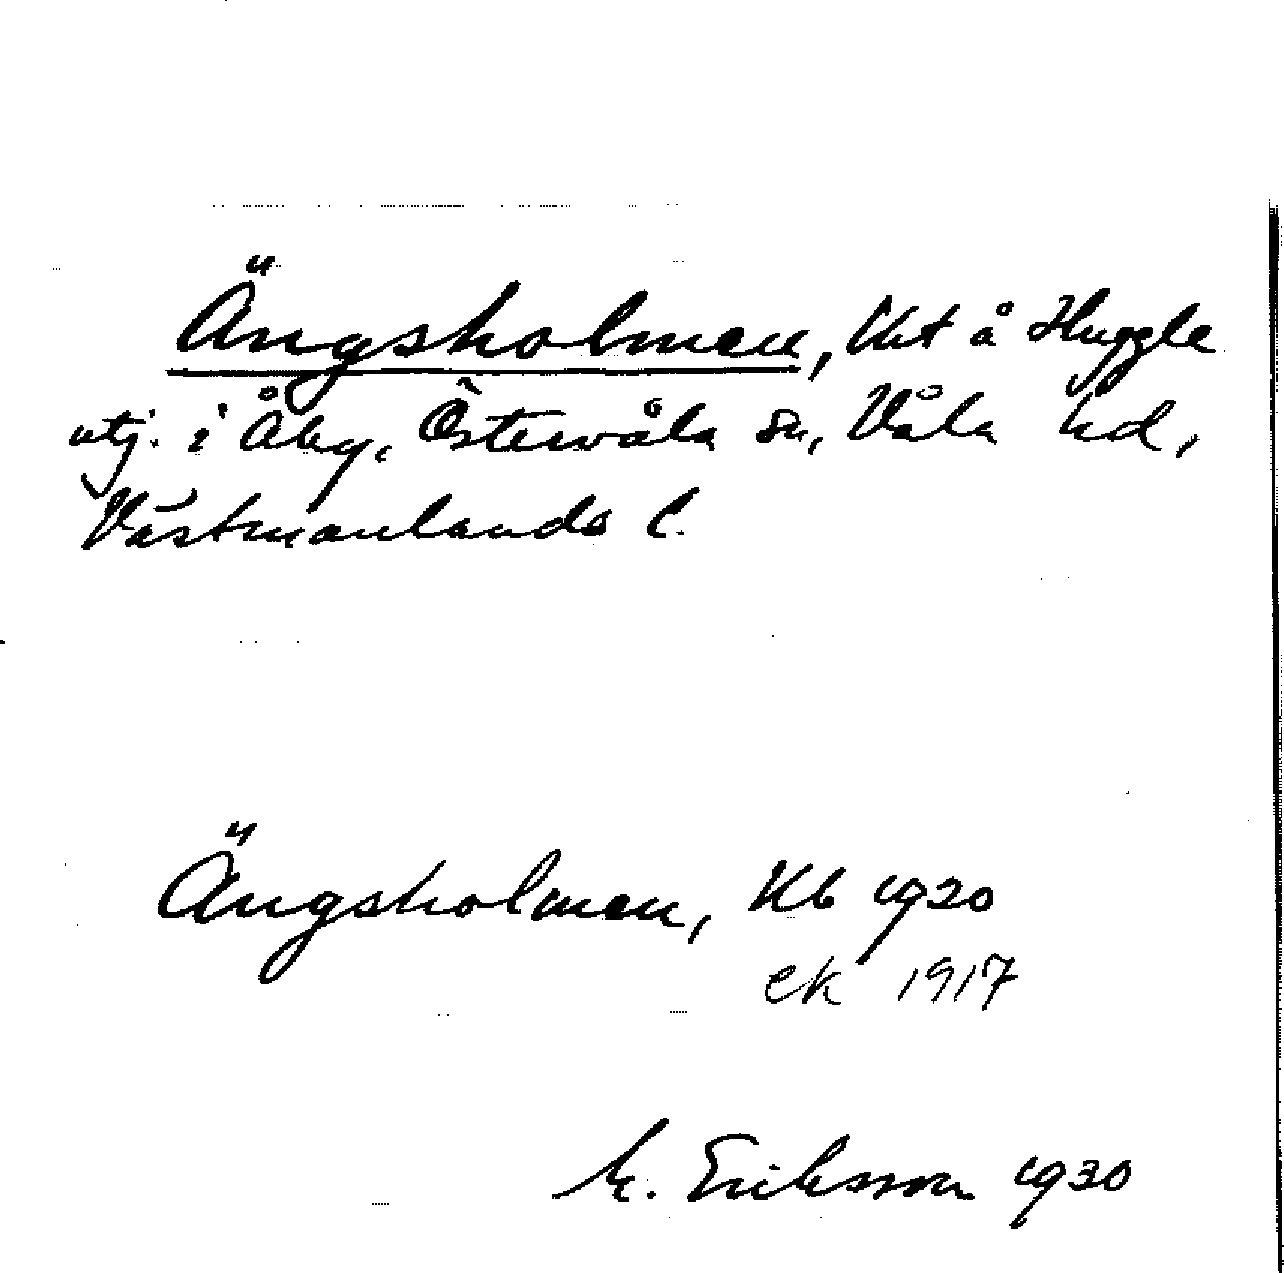 Ängsholmen, Kht å Huggle
utj. i Åby, Östervåla sn, Våla hd,
Västmanlands l.
Ängsholmen, Kb 1920
ek 1917
M. Eriksson 1930